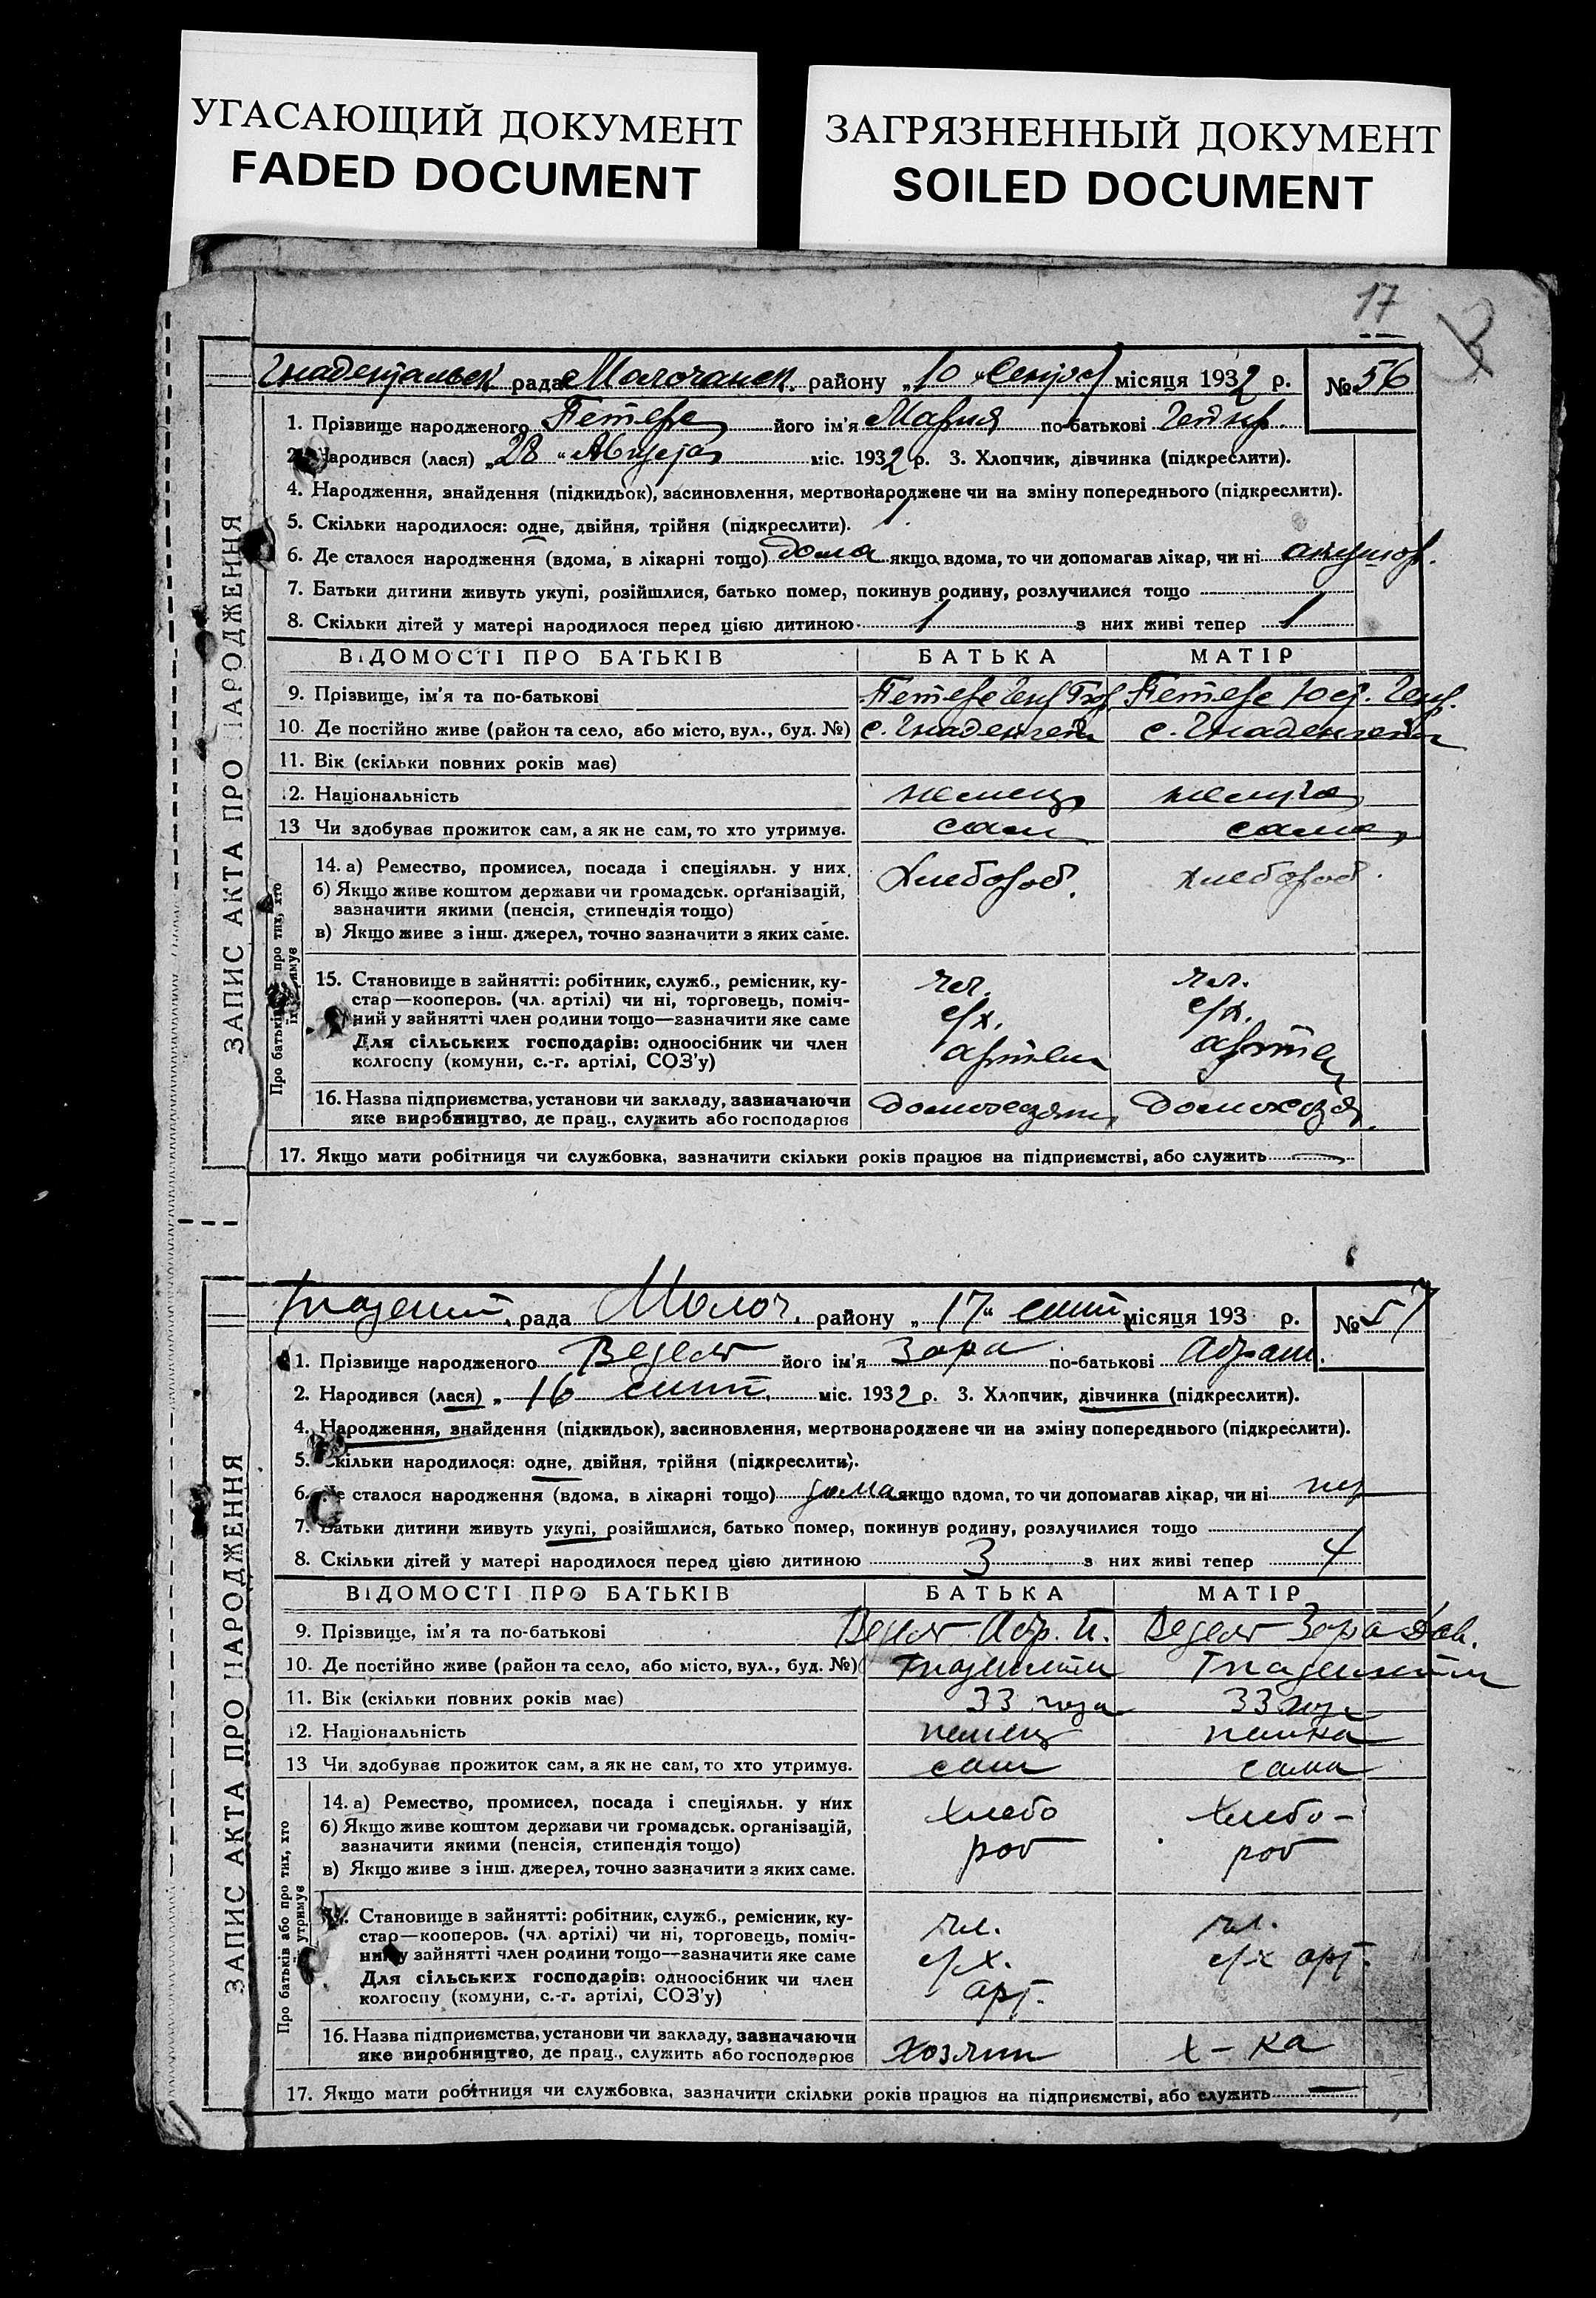 УГАСАЮЩИЙ ДОКУМЕНТ
FADED DOCUMENT
ЗАГРЯЗНЕННЫЙ ДОКУМЕНТ
SOILED DOCUMENT
17
рада Молочанск. району „10" місяця 1932 р. № 56
1. Прізвище народженого Петерс його ім'я Мария по-батькові
2. Народився (лася) „28" Августа міс. 1932 р. 3. Хлопчик, дівчинка (підкреслити).
4. Народження, знайдення (підкидьок), засиновлення, мертвонароджене чи на зміну попереднього (підкреслити).
5. Скільки народилося: одне, двійня, трійня (підкреслити).
6. Де сталося народження (вдома, в лікарні тощо) дома якщо вдома, то чи допомагав лікар, чи ні акушор.
7. Батьки дитини живуть укупі, розійшлися, батько помер, покинув родину, розлучилися тощо
8. Скільки дітей у матері народилося перед цією дитиною 1 з них живі тепер 1
ВІДОМОСТІ ПРО БАТЬКІВ БАТЬКА МАТІР
9. Прізвище, ім'я та по-батькові Петерс Петерс
10. Де постійно живе (район та село, або місто, вул., буд. №) с. с.
11. Вік (скільки повних років має)
12. Національність немец немка
13 Чи здобуває прожиток сам, а як не сам, то хто утримує. сам сама
14. а) Ремество, промисел, посада і спеціяльн. у них. Хлебороб. хлебороб.
б) Якщо живе коштом держави чи громадськ. організацій,
зазначити якими (пенсія, стипендія тощо)
в) Якщо живе з інш. джерел, точно зазначити з яких саме.
15. Становище в зайнятті: робітник, служб., ремісник, ку- чл. чл.
стар—кооперов. (чл. артілі) чи ні, торговець, поміч- с/х. с/х.
ний у зайнятті член родини тощо—зазначити яке саме
Для сільських господарів: одноосібник чи член артели артел
колгоспу (комуни, с.-г. артілі, СОЗ'у)
16. Назва підприємства, установи чи закладу, зазначаючи домохозяин домохозя.
яке виробництво, де прац., служить або господарює
17. Якщо мати робітниця чи службовка, зазначити скільки років працює на підприємстві, або служить —
ЗАПИС АКТА ПРО НАРОДЖЕННЯ
рада Молоч. району „17" місяця 193 р. № 57
1. Прізвище народженого його ім'я Зара по-батькові Абрам.
2. Народився (лася) „16 міс. 1932 р. 3. Хлопчик, дівчинка (підкреслити).
4. Народження, знайдення (підкидьок), засиновлення, мертвонароджене чи на зміну попереднього (підкреслити).
5. Скільки народилося: одне, двійня, трійня (підкреслити).
6. Де сталося народження (вдома, в лікарні тощо) дома якщо вдома, то чи допомагав лікар, чи ні нет
7. Батьки дитини живуть укупі, розійшлися, батько помер, покинув родину, розлучилися тощо
8. Скільки дітей у матері народилося перед цією дитиною 3 з них живі тепер 4
ВІДОМОСТІ ПРО БАТЬКІВ БАТЬКА МАТІР
9. Прізвище, ім'я та по-батькові Абр. Зара
10. Де постійно живе (район та село, або місто, вул., буд. №)
11. Вік (скільки повних років має) 33 года 33 года
12. Національність немец немка
13 Чи здобуває прожиток сам, а як не сам, то хто утримує. сам сама
14. а) Ремество, промисел, посада і спеціяльн. у них хлебо хлебо-
б) Якщо живе коштом держави чи громадськ. організацій,
зазначити якими (пенсія, стипендія тощо) роб роб
в) Якщо живе з інш. джерел, точно зазначити з яких саме.
Становище в зайнятті: робітник, служб., ремісник, ку- чл. чл.
стар—кооперов. (чл. артілі) чи ні, торговець, поміч- с/х. с/х арт.
ний у зайнятті член родини тощо—зазначити яке саме
Для сільських господарів: одноосібник чи член арт.
колгоспу (комуни, с.-г. артілі, СОЗ'у)
16. Назва підприємства, установи чи закладу, зазначаючи хозяин х-ка
яке виробництво, де прац., служить або господарює
17. Якщо мати робітниця чи службовка, зазначити скільки років працює на підприємстві, або служить —
ЗАПИС АКТА ПРО НАРОДЖЕННЯ
Про батьків або про тих, хто
утримує